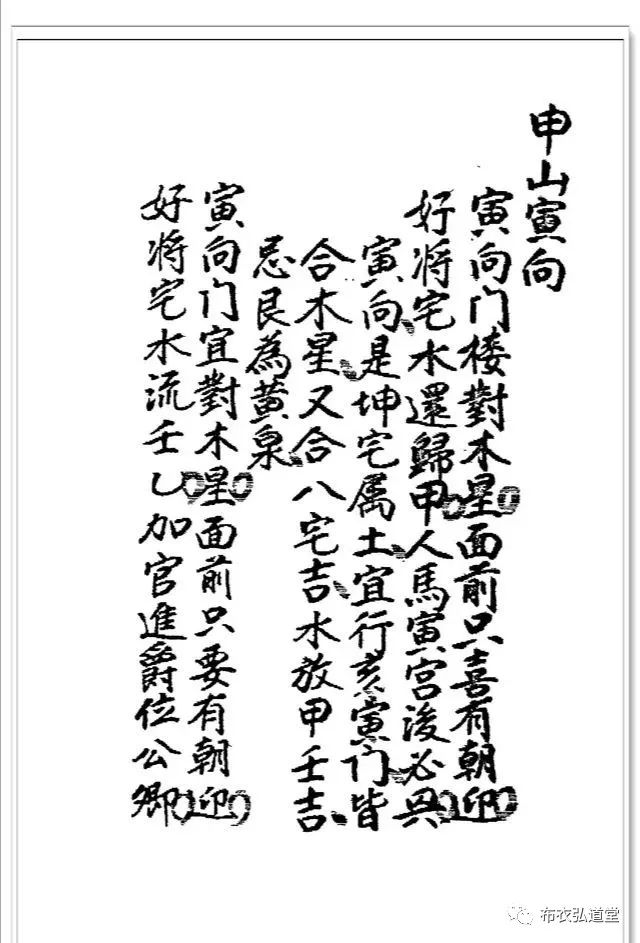 申山寅向
寅向门楼對木星面前只喜有朝迎
好将宅水還歸甲人馬寅宫浚必兴
寅向是坤宅属土宜行亥寅门皆
合木星又合八宅吉水放甲壬吉
忌艮為黄泉
寅向门宜對木星面前只要有朝迎
好将宅水流壬乙加官進爵位公卿
布衣弘道堂